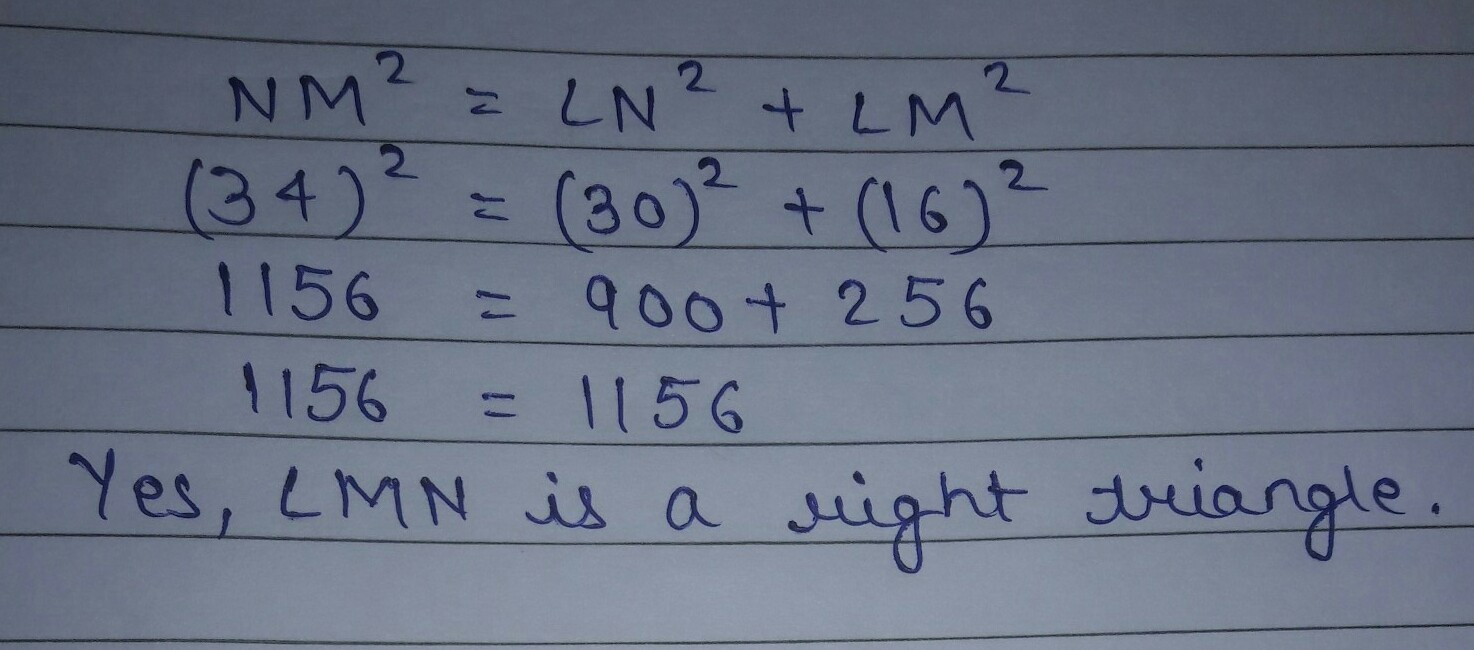 NM² = LN² + LM²
(34)² = (30)² + (16)²
1156 = 900 + 256
1156 = 1156
Yes, LMN is a right triangle.